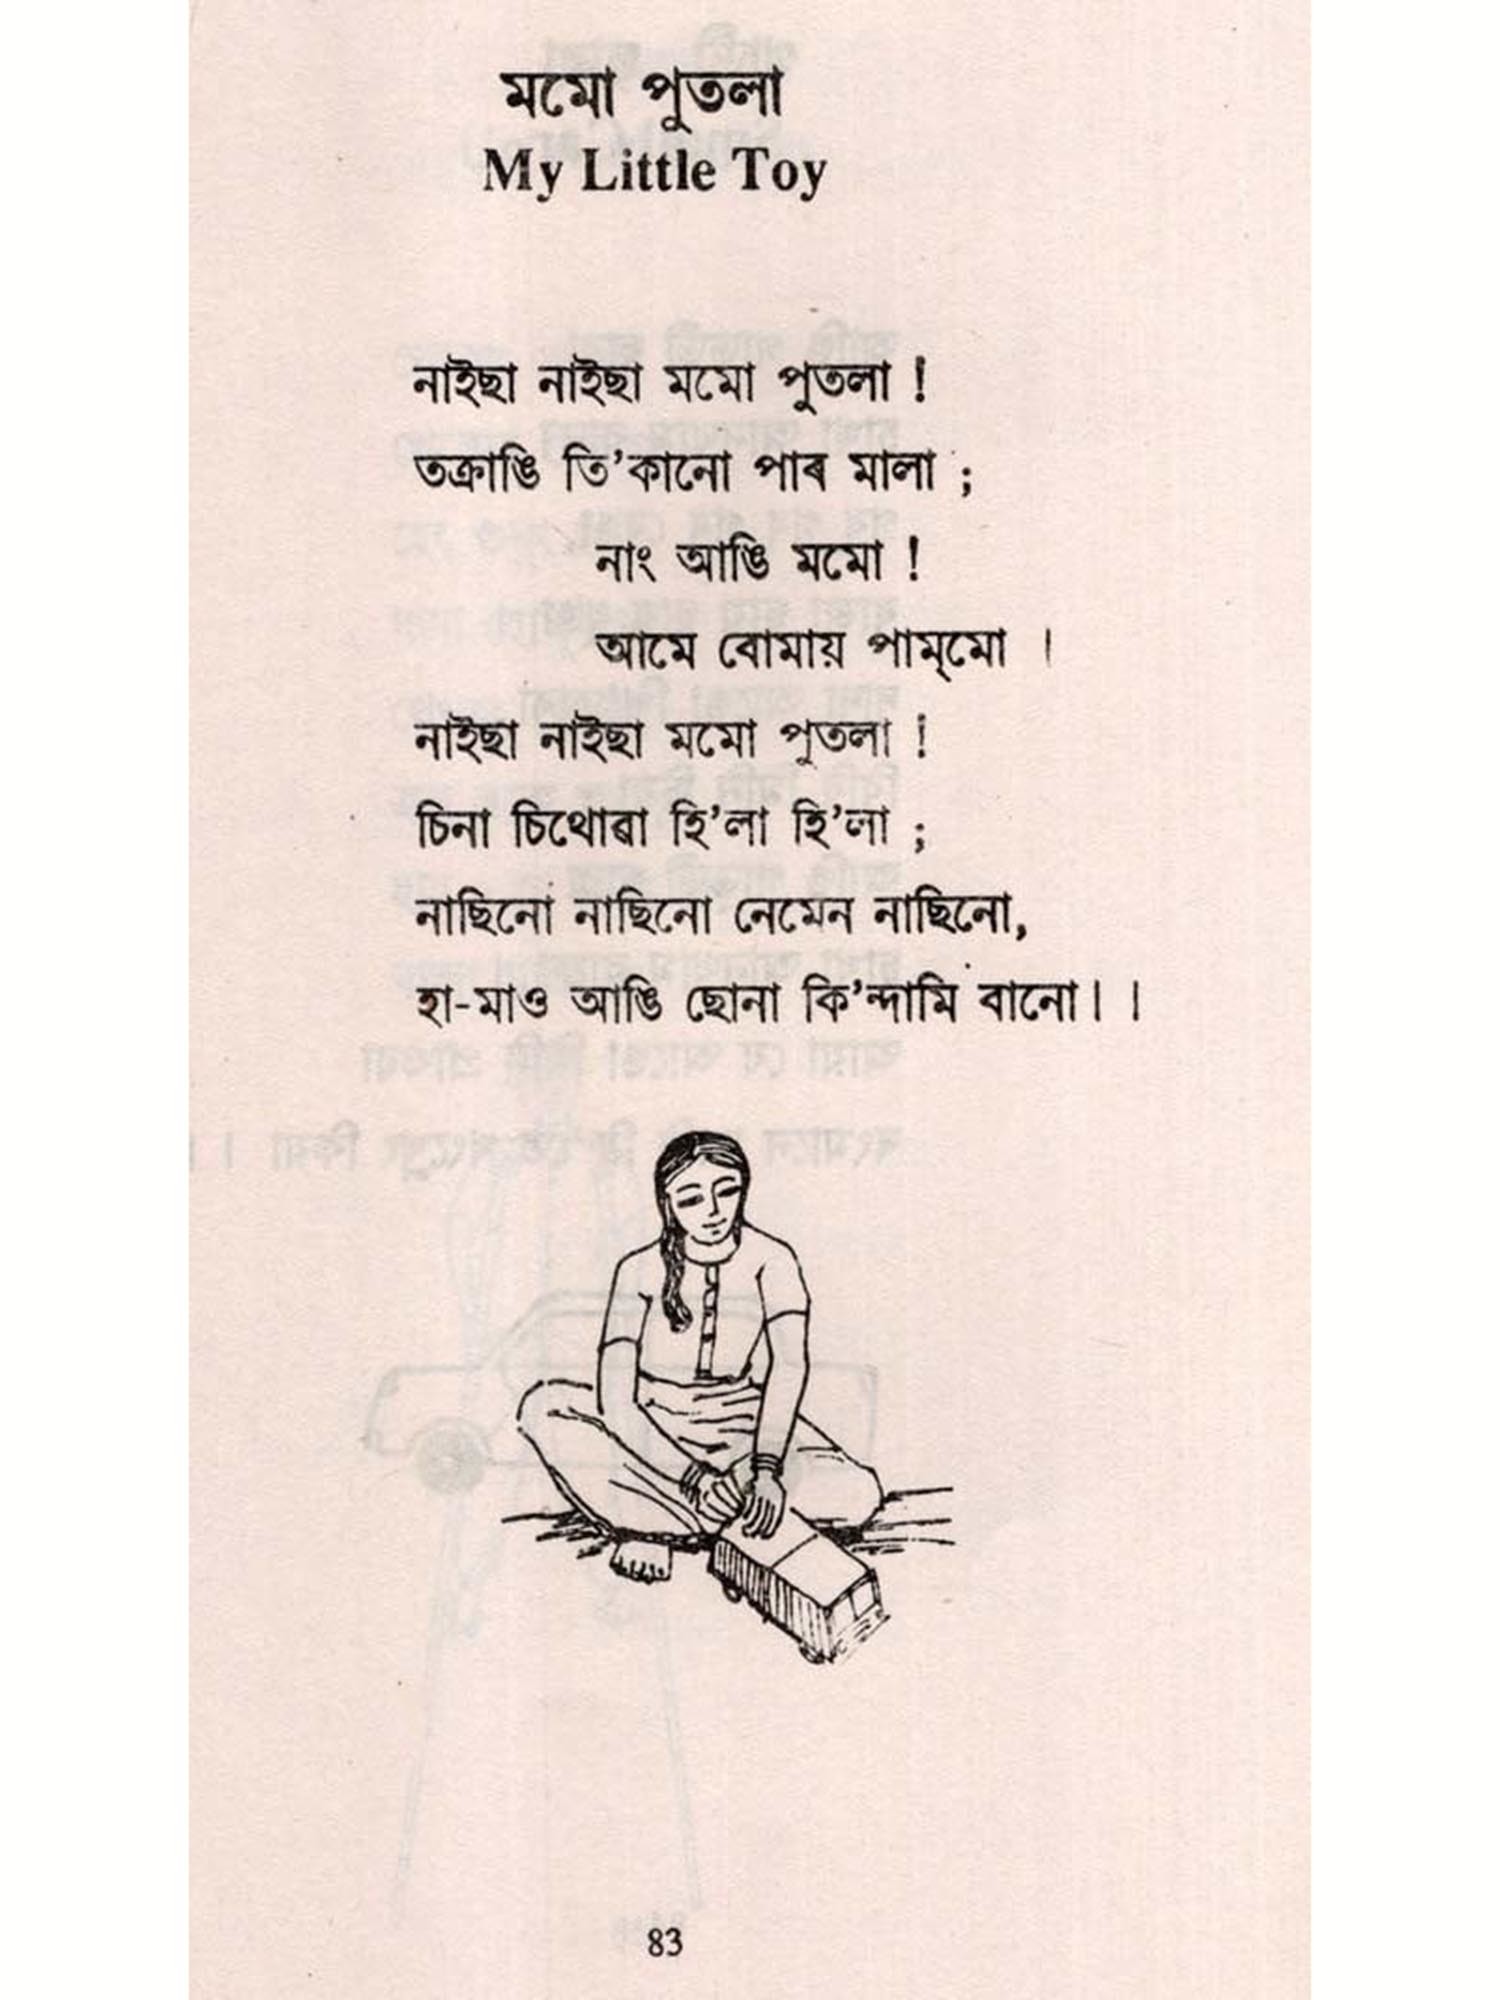 মমো পুতলা
My Little Toy
নাইছা নাইছা মমো পুতলা !
তক্রাঙি তি’কানো পাৰ মালা ;
নাং আঙি মমো !
আমে বোমায় পাম্‌মো ।
নাইছা নাইছা মমো পুতলা !
চিনা চিথোৱা হি’লা হি’লা ;
নাছিনো নাছিনো নেমেন নাছিনো,
হা-মাও আঙি ছোনা কি’ন্দামি বানো। ।
83